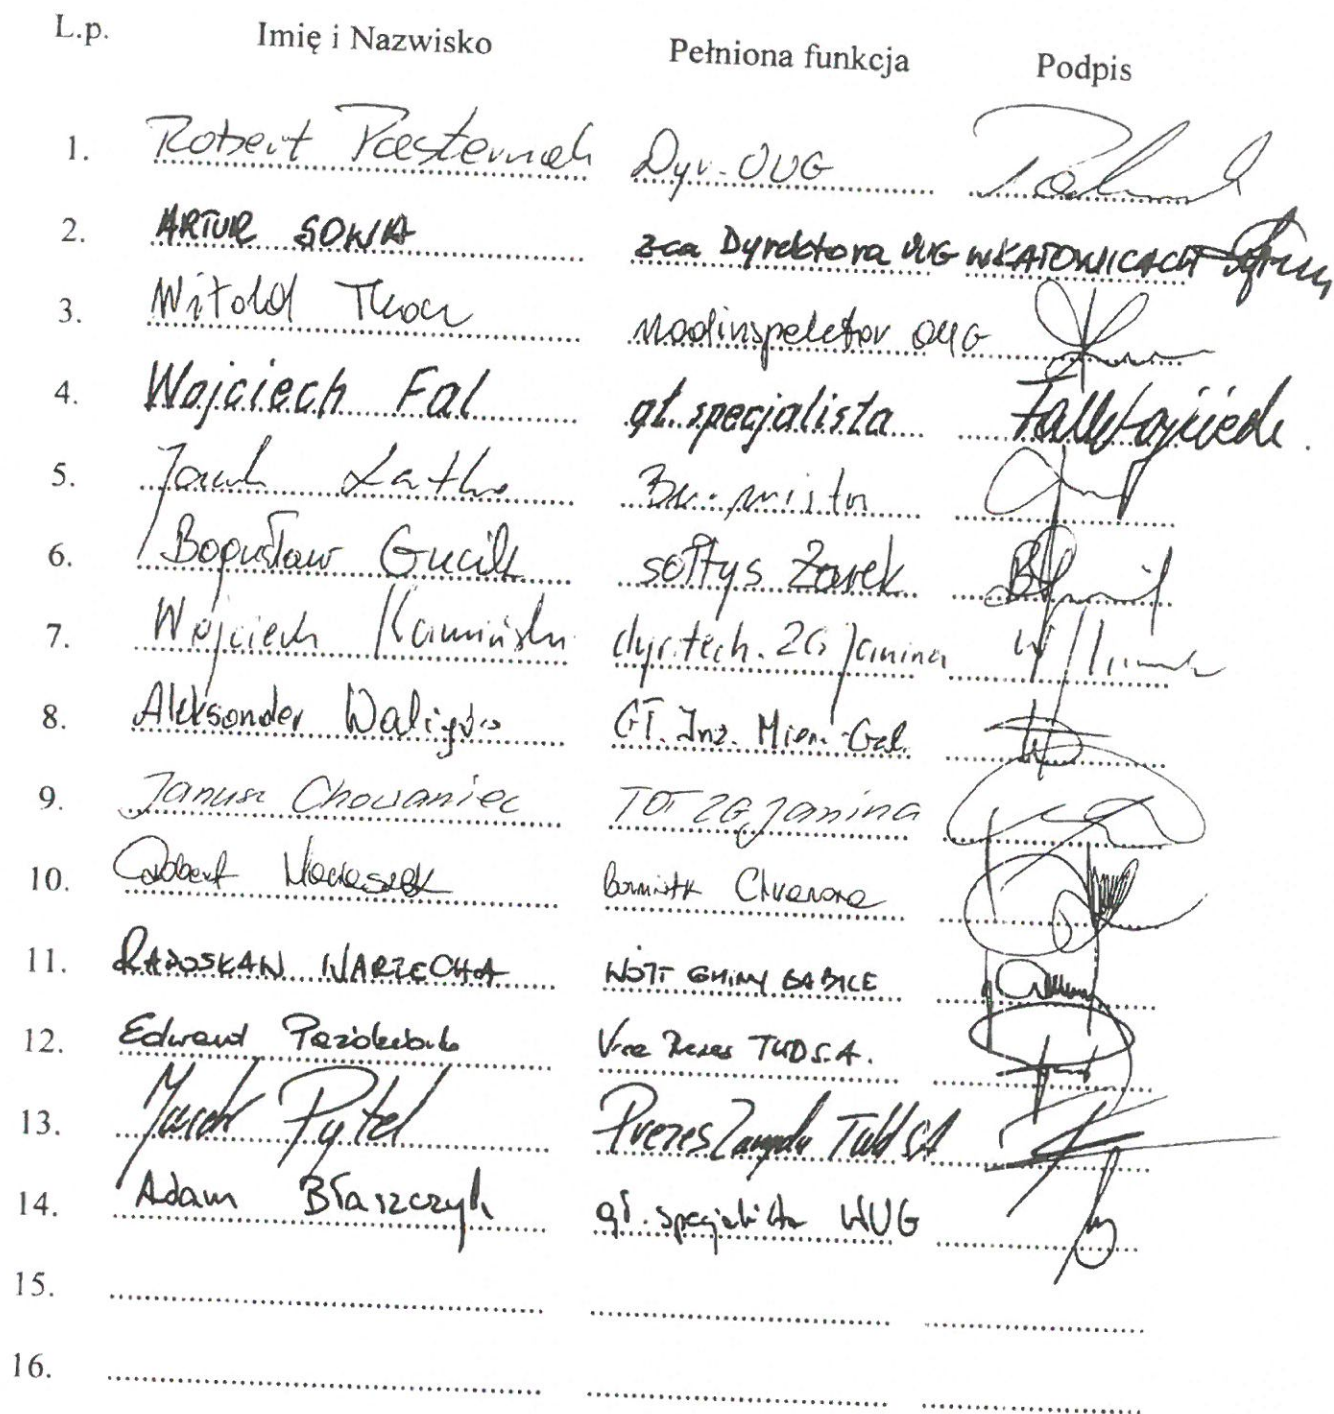 L.p. Imię i Nazwisko Pełniona funkcja Podpis
1. Robert Pasternak Dyr. OUG
2. ARTUR SOWA z-ca Dyrektora OUG W KATOWICACH
3. Witold Tkocz nadinspektor OUG
4. Wojciech Fal gł. specjalista Fal Wojciech
5. Burmistrz
6. Bogusław Gucik sołtys Żarek
7. Wojciech Kamiński dyr. tech. ZG Janina
8. Aleksander Waligóra Gł. Inż. Miern.-Geol.
9. Janusz Chowaniec TOT ZG Janina
10. Robert Maciaszek burmistrz Chrzanowa
11. RADOSŁAW WARZECHA WÓJT GMINY BABICE
12. Edward Vice Prezes TWD S.A.
13. Jacek Pytel Prezes Zarządu TWD SA
14. Adam Błaszczyk gł. specjalista WUG
15.
16.